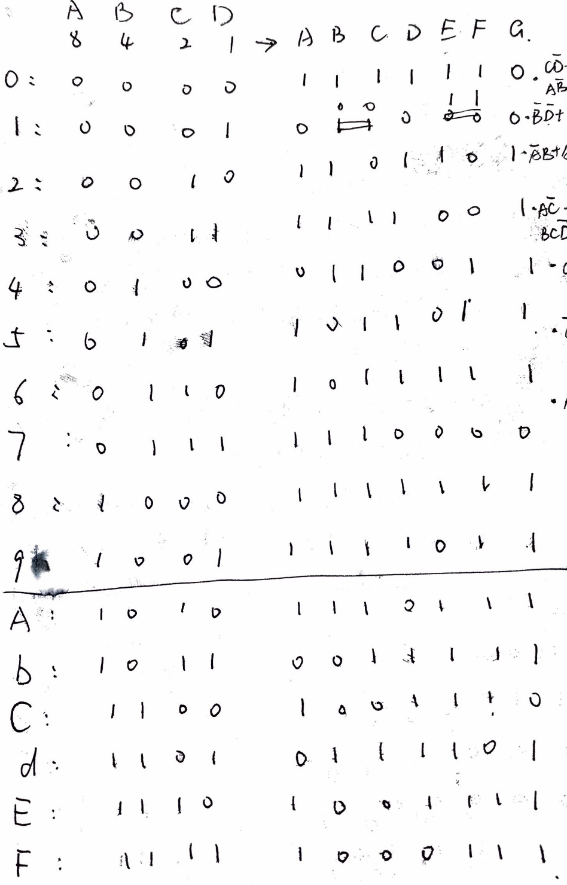 A B C D
8 4 2 1 → A B C D E F G.
0: 0 0 0 0 1 1 1 1 1 1 0 ·
1: 0 0 0 1 0 0 0 1 1 0 ·B̄D̄+
2: 0 0 1 0 1 1 0 1 1 0 1 ·ĀB+
3: 0 0 1 1 1 1 1 1 0 0 1 ·AC̄
4: 0 1 0 0 0 1 1 0 0 1 1 ·
5: 0 1 0 1 1 0 1 1 0 1 1 ·
6: 0 1 1 0 1 0 1 1 1 1 1 ·
7: 0 1 1 1 1 1 1 0 0 0 0
8: 1 0 0 0 1 1 1 1 1 1 1
9 1 0 0 1 1 1 1 1 0 1 1
A: 1 0 1 0 1 1 1 0 1 1 1
b: 1 0 1 1 0 0 1 1 1 1 1
C: 1 1 0 0 1 0 0 1 1 1 0
d: 1 1 0 1 0 1 1 1 1 0 1
E: 1 1 1 0 1 0 0 1 1 1 1
F: 1 1 1 1 1 0 0 0 1 1 1